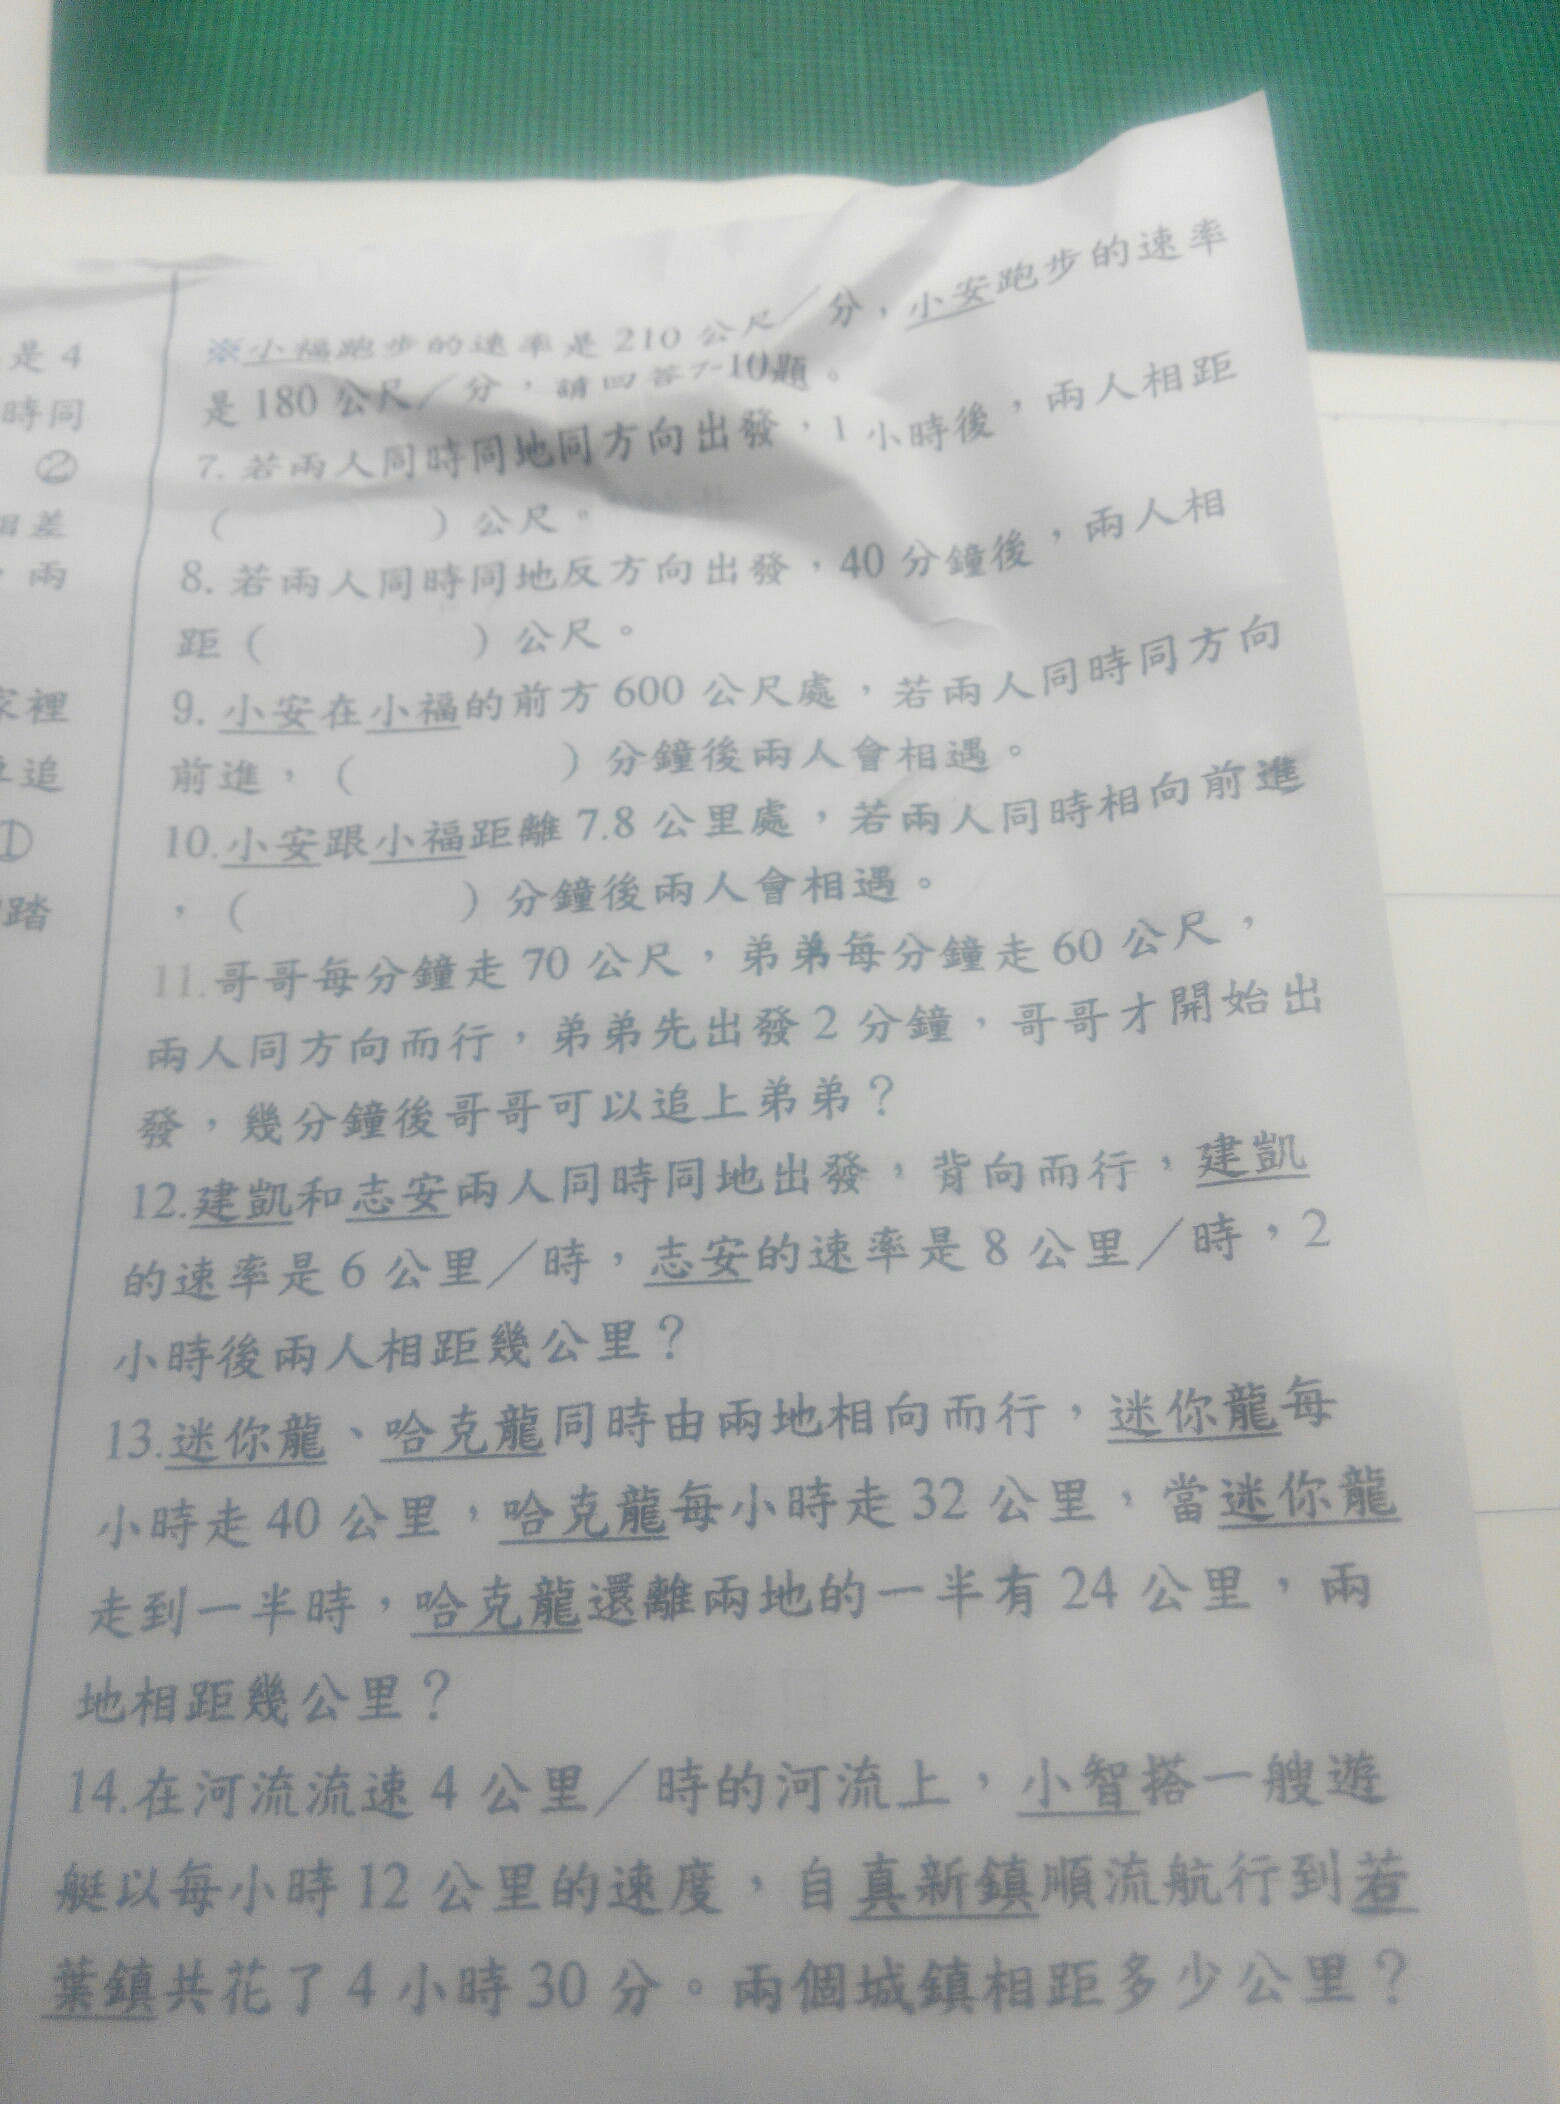 是4
時同
②
相差
,兩
家裡
追
①
踏
※小福跑步的速率是210公尺/分,小安跑步的速率
是180公尺/分,請回答7-10題。
7.若兩人同時同地同方向出發,1小時後,兩人相距
( )公尺。
8.若兩人同時同地反方向出發,40分鐘後,兩人相
距( )公尺。
9.小安在小福的前方600公尺處,若兩人同時同方向
前進,( )分鐘後兩人會相遇。
10.小安跟小福距離7.8公里處,若兩人同時相向前進
,( )分鐘後兩人會相遇。
11.哥哥每分鐘走70公尺,弟弟每分鐘走60公尺,
兩人同方向而行,弟弟先出發2分鐘,哥哥才開始出
發,幾分鐘後哥哥可以追上弟弟?
12.建凱和志安兩人同時同地出發,背向而行,建凱
的速率是6公里/時,志安的速率是8公里/時,2
小時後兩人相距幾公里?
13.迷你龍、哈克龍同時由兩地相向而行,迷你龍每
小時走40公里,哈克龍每小時走32公里,當迷你龍
走到一半時,哈克龍還離兩地的一半有24公里,兩
地相距幾公里?
14.在河流流速4公里/時的河流上,小智搭一艘遊
艇以每小時12公里的速度,自真新鎮順流航行到若
葉鎮共花了4小時30分。兩個城鎮相距多少公里?